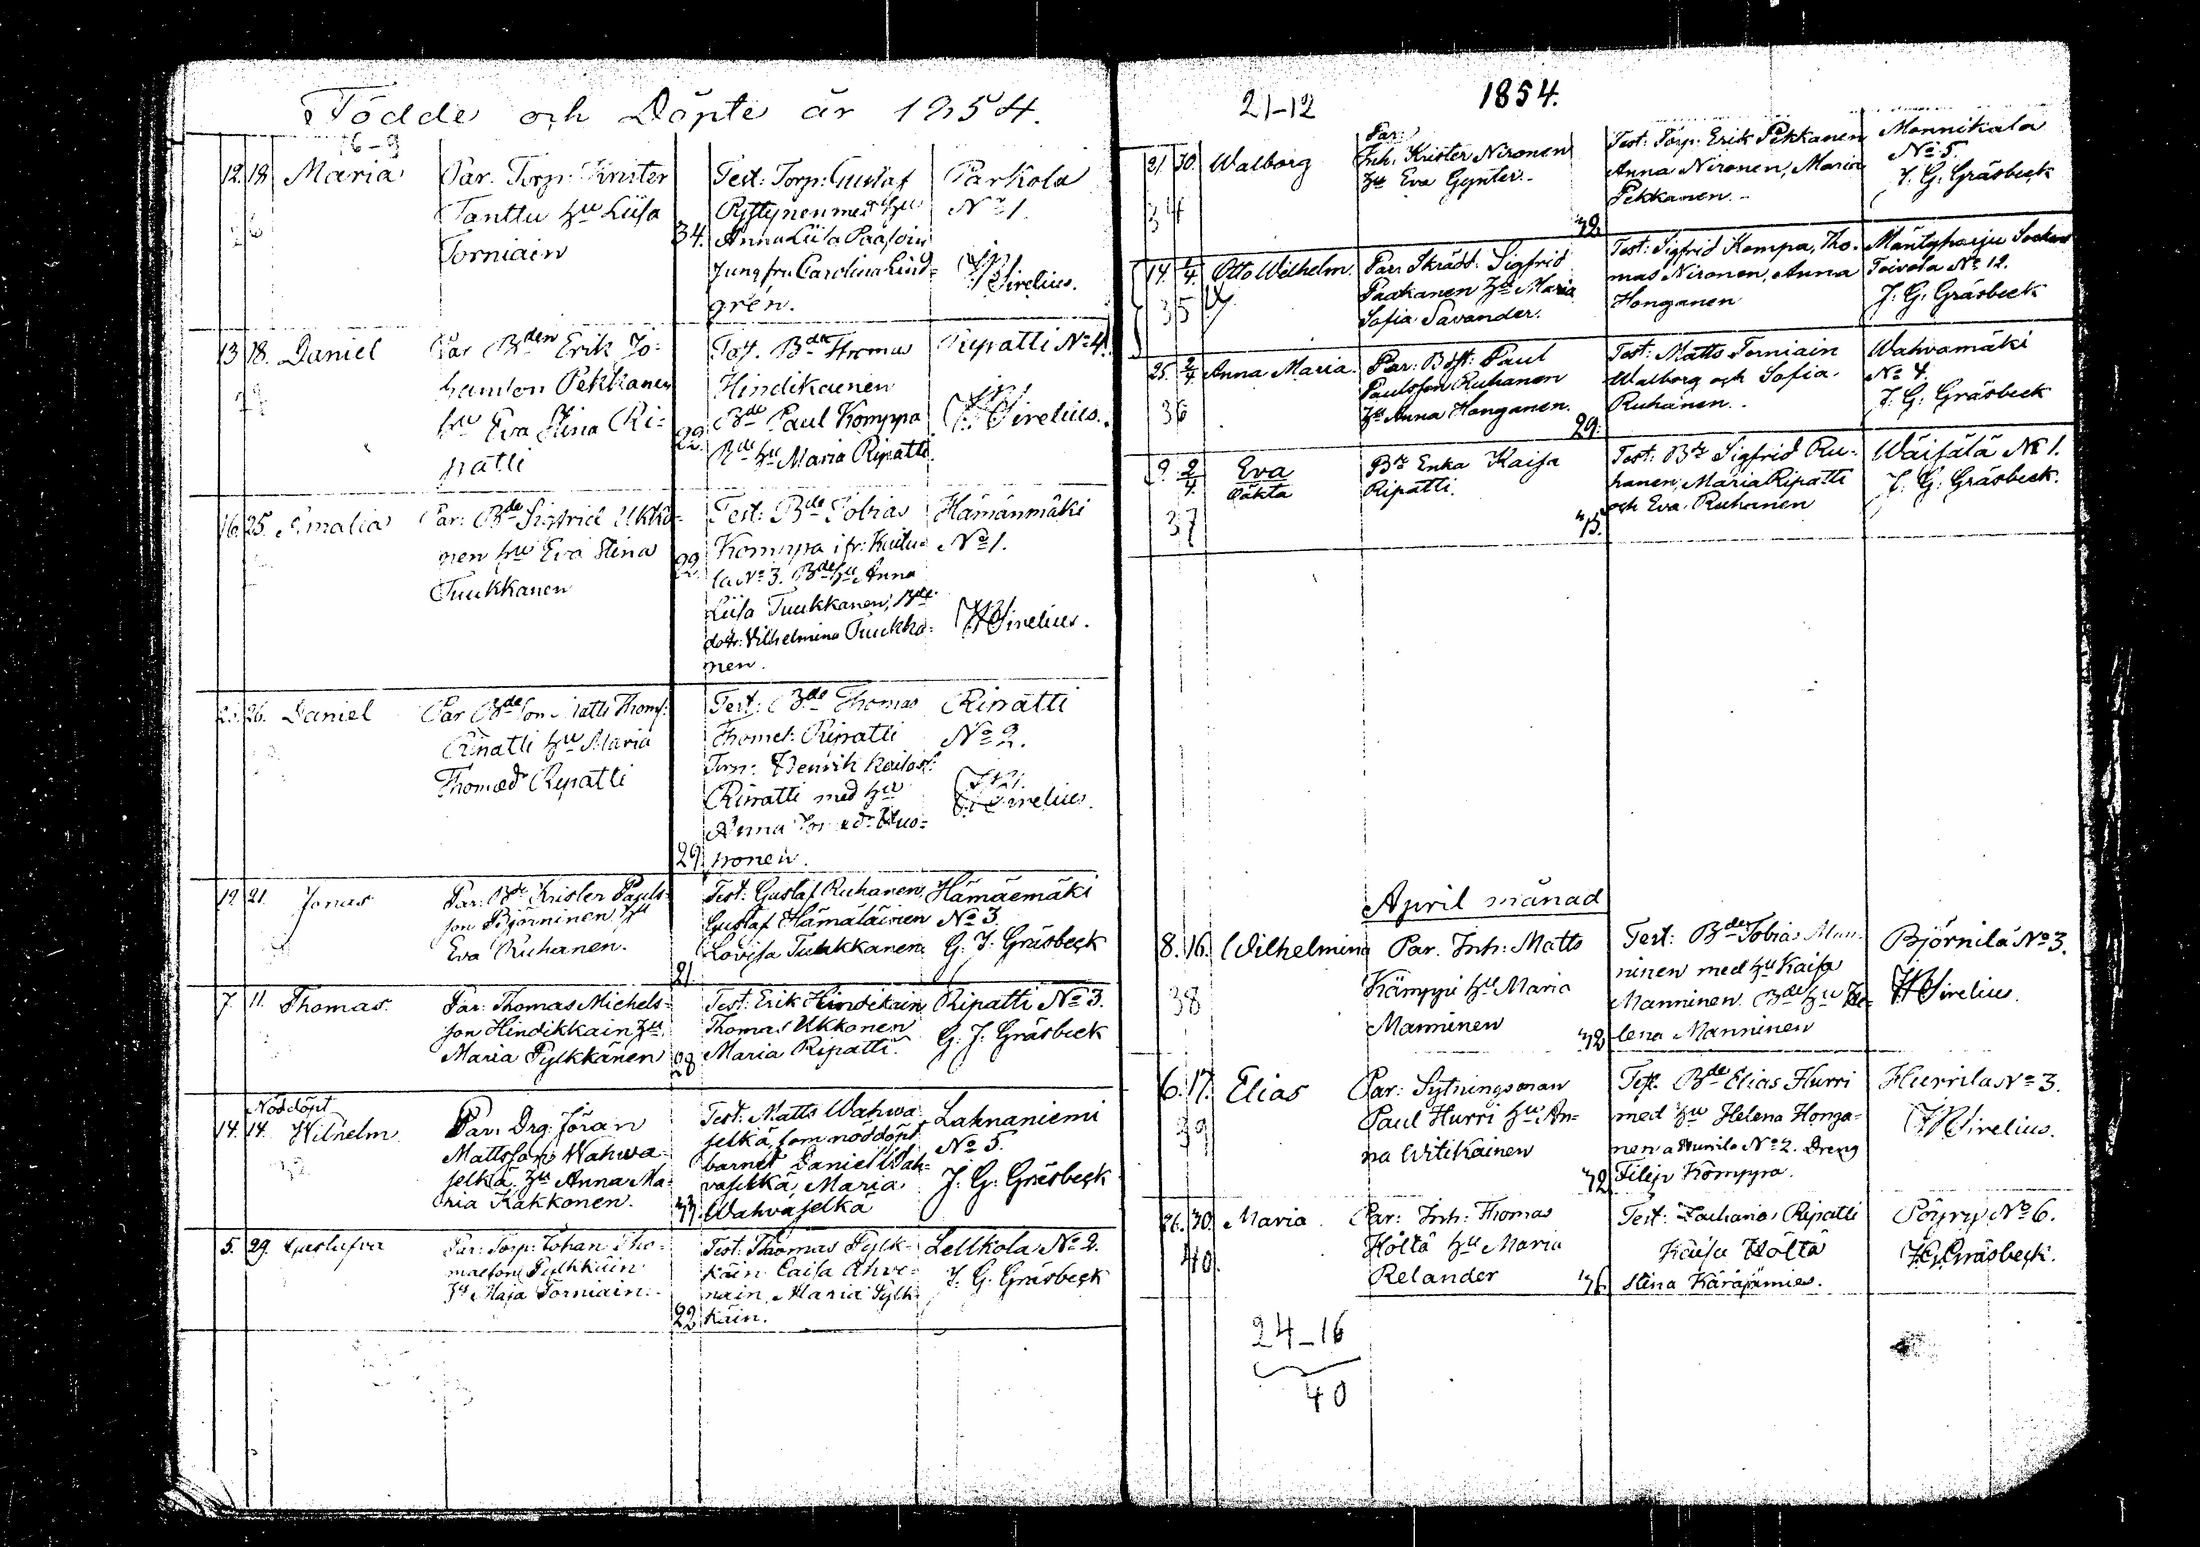 Födde och Döpte år 1854.
16-9
12. 18. Maria
Par. Torp: Krister
Tanttu hu Liisa
Torniain
34.
Test: Torp: Gustaf
Pyttynen med hu
Anna Liisa Paasoin
Jungfru Carolina Lind=
grén.
Parkola
No 1.
Sirelius.
13 18. Daniel
Par Bden Erik Jo=
hansson Pekkanen
hu Eva Stina Ri=
patti
22.
Bde Thomas
Hindikainen
Bde Paul Komppa
Bde hu Maria Ripatti
Ripatti No 4.
Sirelius.
16. 25. Amalia
Par: Bde Sigfrid Ukko=
nen hu Eva Stina
Tuukkanen
22.
Test: Bde Tobias
Komppa ifr: Kuitu=
la No 3. Bde hu Anna
Liisa Tuukkanen, Bde
dotr: Vilhelmina Tuukka=
nen.
Hämänmäki
No 1.
Sirelius.
26. Daniel
Par Bde son Matts Thoms:
Ripatti hu Maria
Thomasdr Ripatti
29.
Test: Bde Thomas
Thomss: Ripatti
Torp: Henrik
Ripatti med hu
Anna
ponen.
Ripatti
No 2.
Sirelius.
19. 21. Jonas
Par: Bde Krister Pauls=
son Björninen hu
Eva Ruhanen.
21
Test: Gustaf Ruhanen,
Gustaf Hämäläinen
Lovisa Tuukkanen.
Hämäemäki
No 3
G. J. Gräsbeck
7. 11. Thomas.
Par: Thomas Michels=
son Hindikkain hu
Maria Pylkkänen
28
Test: Erik Hindikain,
Thomas Ukkonen
Maria Ripatti.
Ripatti No 3.
G. J. Gräsbeck
Nöddöpt
14. 14. Wilhelm.
Par: Drg: Jöran
Mattsson Wahwa=
selkä. hu Anna Ma=
ria Kakkonen.
33.
Test: Matts Wahwa
selkä, som nöddöpt
barnet Daniel Wah=
vaselkä, Maria
Wahvaselkä
Lahnaniemi
No 5.
J. G. Gräsbeck
5. 29. Gustafva
Par: Torp: Johan Tho=
masson Pylkkäin
hu Maja Torniain.
22
Test: Thomas Pylk=
käin Caisa Ahve=
nain, Maria Pylk=
käin.
Lellkola No 2.
J. G. Gräsbeck
21-12
1854.
21. 30. Walborg
34
Par:
Inh: Krister Nironen
hu Eva Gynter.
32
Test: Torp: Erik Pekkanen
Anna Nironen, Maria
Pekkanen.
Monnikala
No 5.
J. G. Gräsbeck
14. 1/4 Otto Wilhelm.
35
Par: Skrädd: Sigfrid
Paakanen hu Maria
Sofia Savander.
Test: Sigfrid Kompa, Tho=
mas Nironen, Anna
Honganen
Mäntyharju Socken
Toivola No 12.
J. G. Gräsbeck
25. 2/4 Anna Maria.
36
Par: Bdst: Paul
Paulsson Ruhanen
hu Anna Honganen.
29.
Test: Matts Torniain
Walborg och Sofia
Ruhanen.
Wahvamäki
No 4.
J. G. Gräsbeck
9. 9/4 Eva
oäkta
37
Bde Enka Kaisa
Ripatti.
Test: Bde Sigfrid Ru=
hanen, Maria Ripatti
och Eva Ruhanen
Wäisälä No 1.
J. G. Gräsbeck.
April månad
8. 16. Wilhelmina
38
Par. Inh: Matts
Kämppi hu Maria
Manninen
32
Test: Bde Tobias Man=
ninen med hu Kaisa
Manninen. Bde hu He=
lena Manninen
Björnilä No 3.
Sirelius.
6. 17. Elias
39
Par: Sytningsman
Paul Hurri hu An=
na Witikainen
32
Test. Bde Elias Hurri
med hu Helena Honga=
nen a Hurrila No 2. Dreng
Filip Komppa.
Hurrila No 3.
Sirelius.
26. 30. Maria
40
Par: Inh: Thomas
Höltä hu Maria
Relander
36
Test: Zacharias Ripatti
Kaisa Höltä
Stina Käräjämies.
Pöyry No 6.
J. G. Gräsbeck.
24-16
40